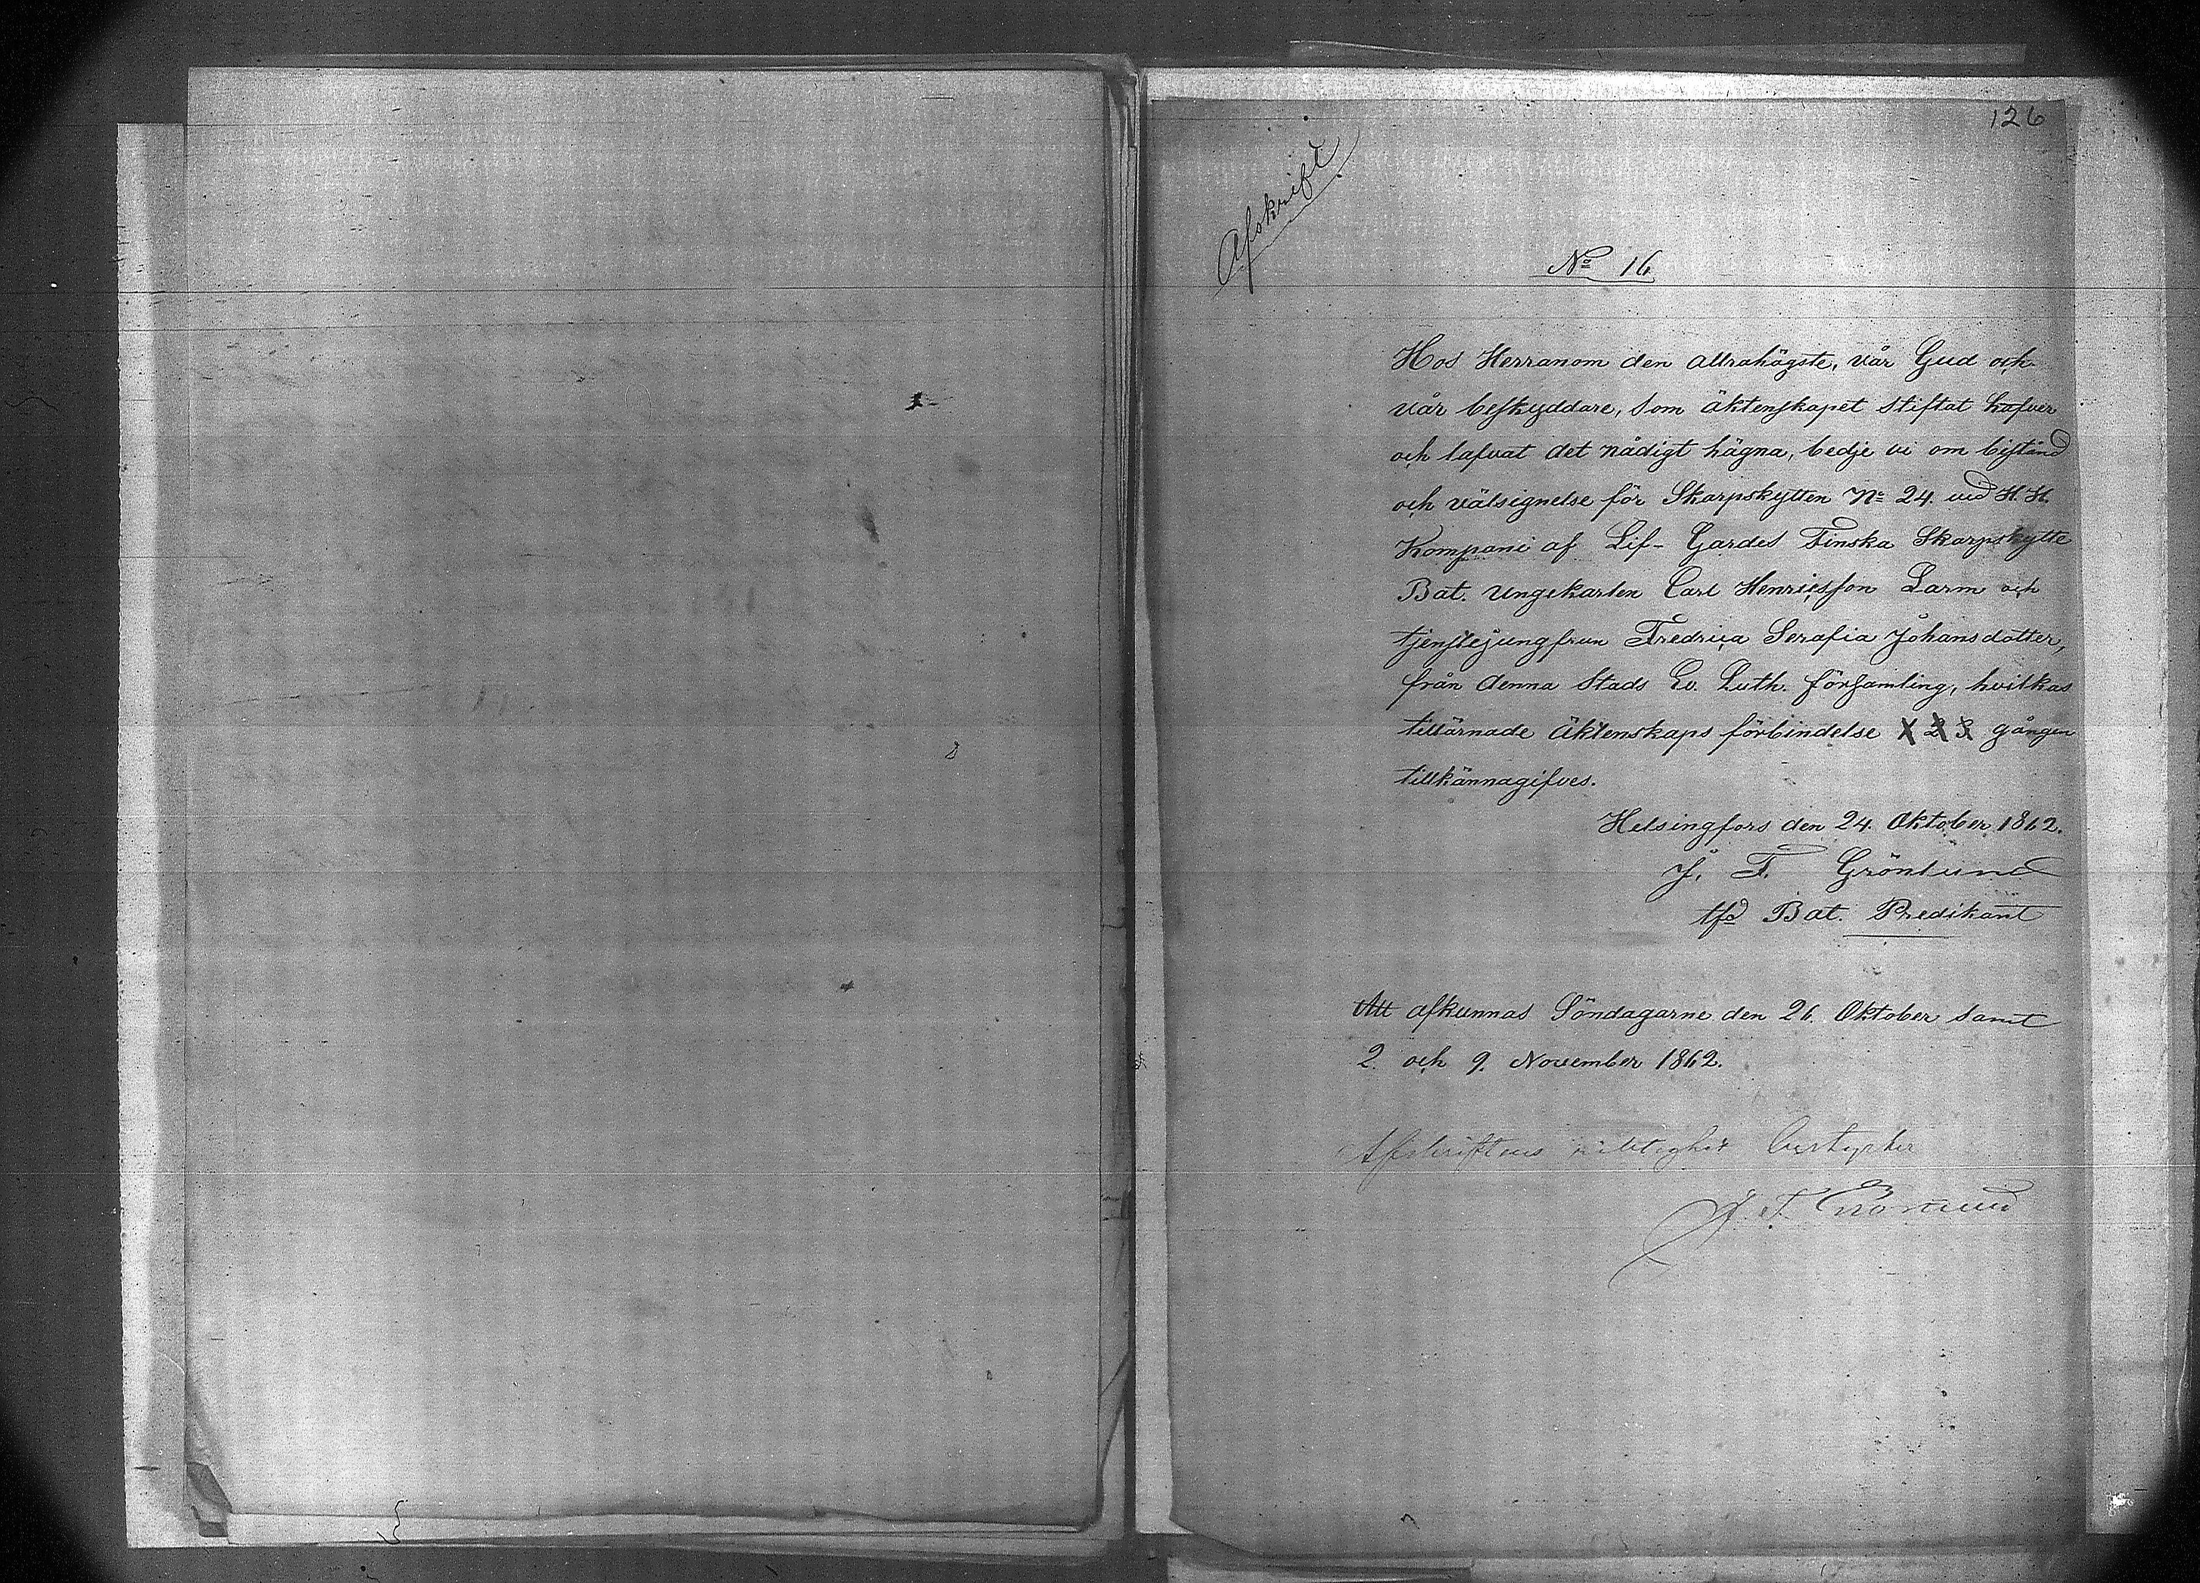 126
Afskrift.
No 16
Hos Herranom den allrahögste, vår Gud och
vår beskyddare, som äktenskapet stiftat hafver
och lafvat det nådigt hägna, bedje vi om bistånd
och välsignelse för Skarpskytten No 24. vid H. H.
Kompani af Lif-Gardes Finska Skarpskytte
Bat. Ungekarlen Carl Henricsson Larm och
tjenstejungfrun Fredrica Serafia Johansdotter,
från denna Stads Ev. Luth. församling, hvilkas
tillärnade Äktenskaps förbindelse 1 2 3. gången
tillkännagifves.
Helsingfors den 24. Oktober 1862.
J. F. Grönlund
tfd Bat. Predikant
Att afkunnas Söndagarne den 26. Oktober samt
2. och 9. November 1862.
Afskriftens riktighet bestyrker
J. F. Grönlund